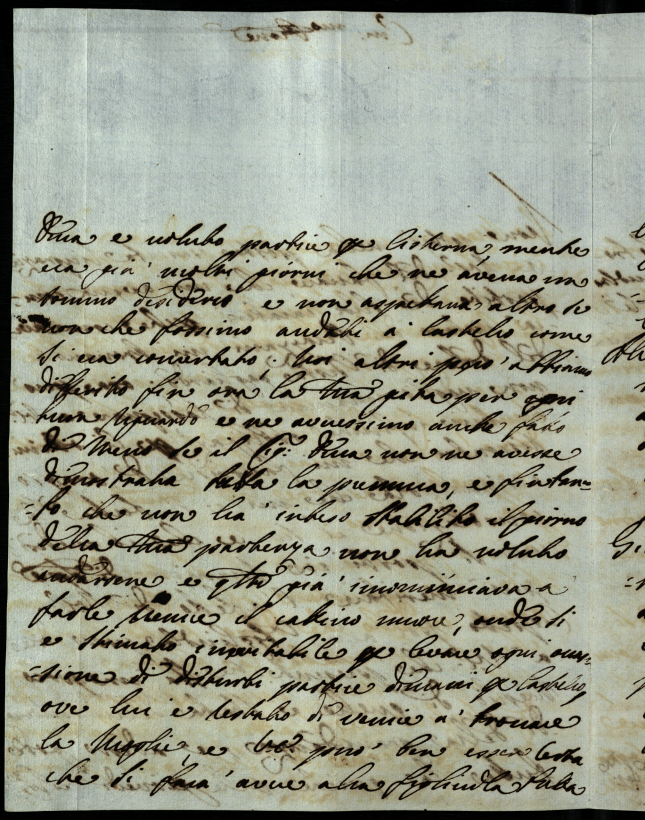 Duca e voluto partire per Cisterna mentre
era già molti giorni che ne aveva un
sommo desiderio e non aspettava altro se
non che fossimo andati a Castello come
si era concertato. Noi altri però abbiamo
differito fin ora la sua gita per ogni
buon riguardo e ne avressimo anche fatto
di meno se il Sig. Duca non ne avesse
dimostrata tutta la premura, e fintan=
=to che non ha inteso stabilito il giorno
della sua partenza non ha voluto
andarsene e già incominciava a
farle venire il cattivo umore, onde si
e stimato inevitabile per levare ogni occa=
=sione di disturbi partire per Castello,
ove lui e restato di venire a trovare
la Moglie, e può ben esser certa
che si farà avere alla figliuola tutta